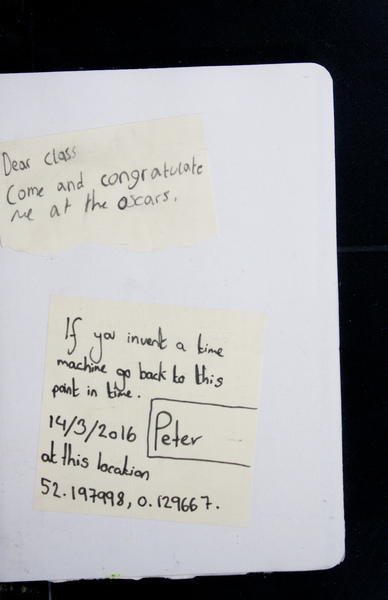 Dear class
Come and congratulate
me at the oscars.
If you invent a time
machine go back to this
point in time.
14/3/2016 Peter
at this location
52.197998, 0.129667.